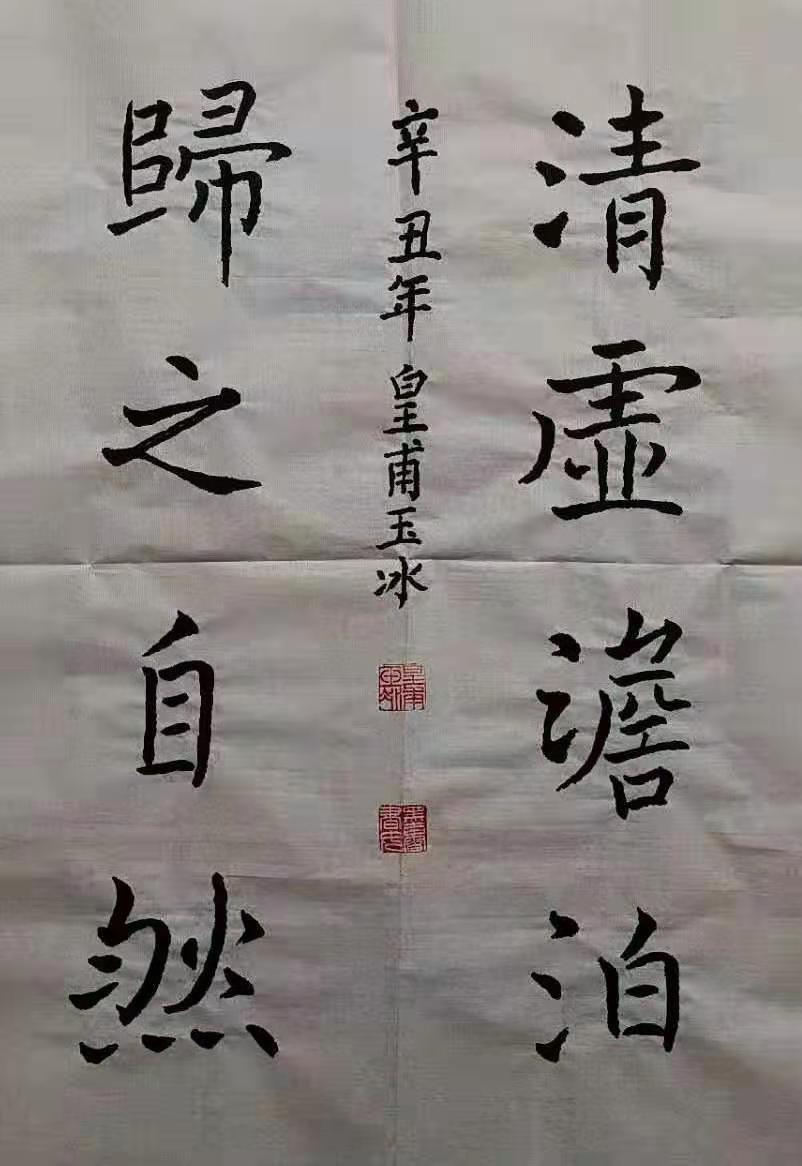 清虛澹泊
歸之自然
辛丑年 皇甫玉冰